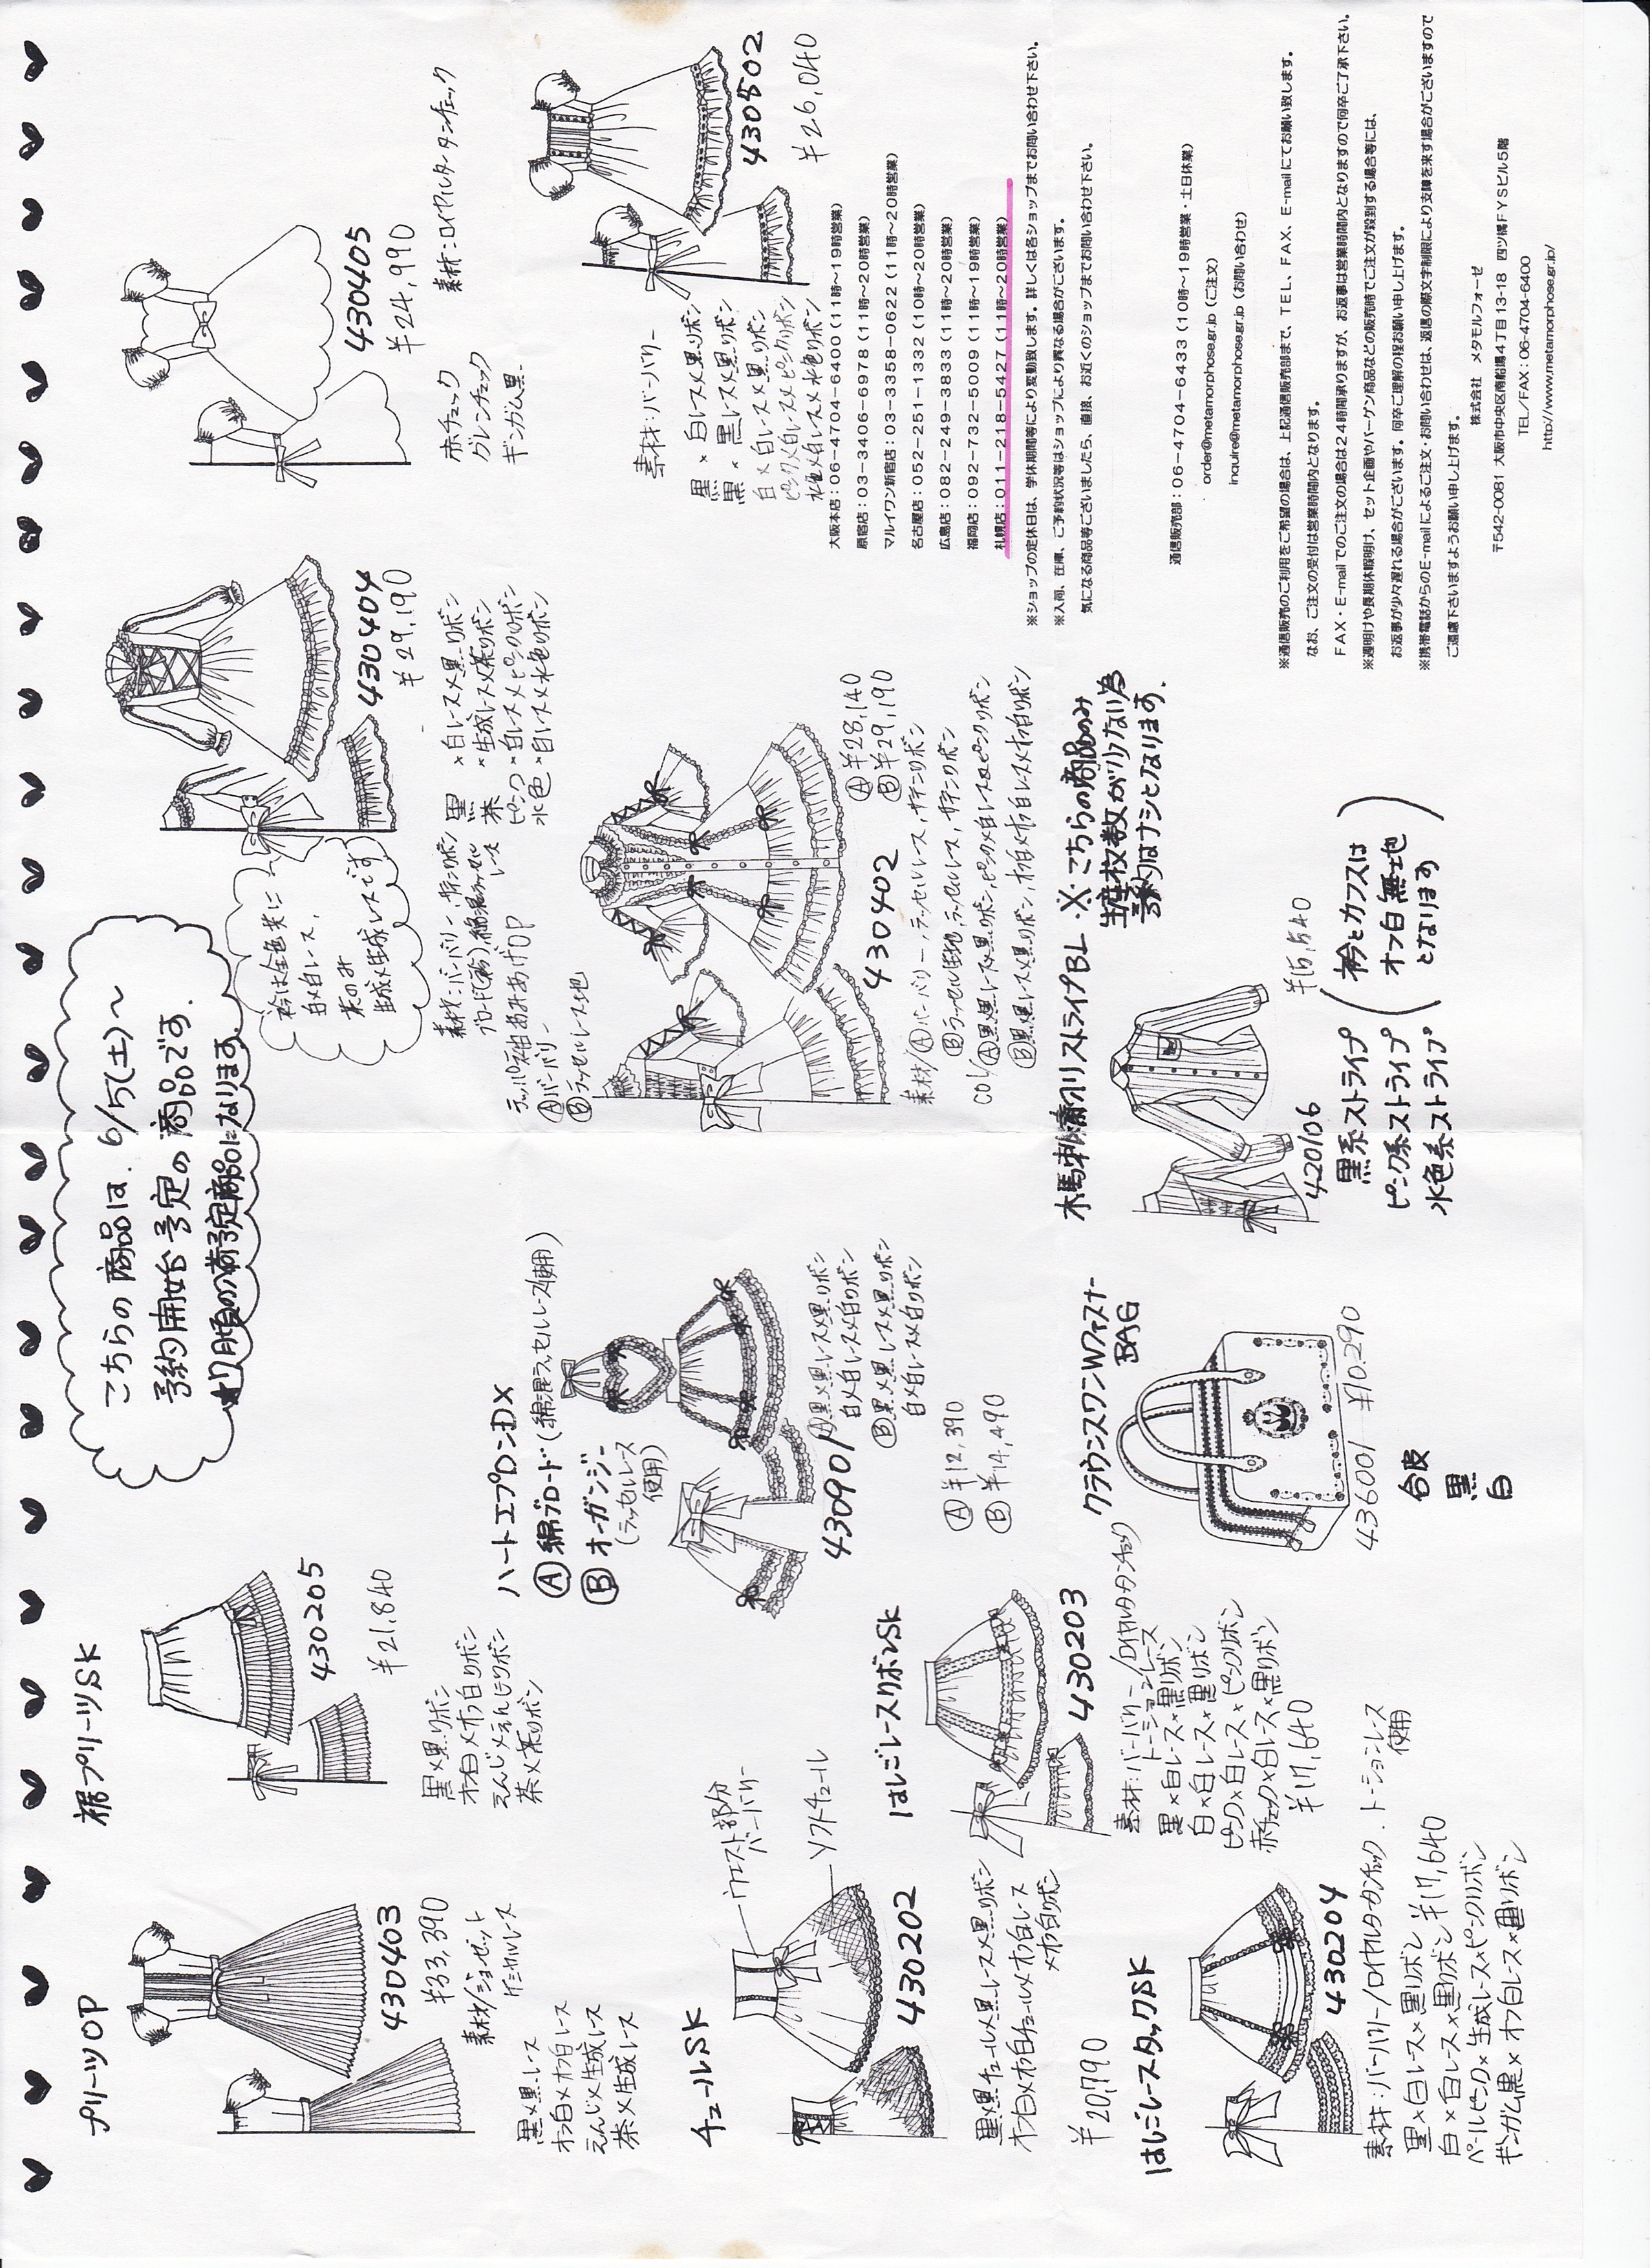 こちらの商品は、6/5(土)〜
予約開始予定の商品です。
プリーツOP
430403
¥33,390
素材/ジョーゼット
ケミカルレース
黒×黒レース
オフ白×オフ白レース
えんじ×生成レース
茶×生成レース
裾プリーツSK
430205
¥21,840
黒×黒リボン
オフ白×オフ白リボン
えんじ×えんじリボン
茶×茶リボン
衿は全色共に
白×白レース、
茶のみ
生成×生成レースです
430404
¥29,190
黒×白レース×黒リボン
茶×生成レース×茶リボン
ピンク×白レース×ピンクリボン
水色×白レース×水色リボン
4304405
¥24,990
素材:ロイヤルタータンチェック
赤チェック
グレンチェック
ギンガム黒
チュールSK
ウエスト部分
バーバリー
ソフトチュール
430202
黒×黒チュール×黒レース×黒リボン
オフ白×オフ白チュール×オフ白レース
×オフ白リボン
¥20,790
ハートエプロンDX
Ⓐ綿ブロード(綿混ラッセルレース使用)
Ⓑオーガンジー
(ラッセルレース
使用)
430901
Ⓐ黒×黒レース×黒リボン
白×白レース×白リボン
Ⓑ黒×黒レース×黒リボン
白×白レース×白リボン
Ⓐ¥12,390
Ⓑ¥14,490
Ⓐバーバリー
Ⓑラッセルレース地
430402
Ⓐ¥28,140
Ⓑ¥29,190
素材/Ⓐバーバリー,ラッセルレース,サテンリボン
Ⓑラッセル生地,ラッセルレス,サテンリボン
素材:バーバリー
黒×白レース×黒リボン
黒×黒レース×黒リボン
白×白レース×黒リボン
ピンク×白レース×ピンクリボン
水色×白レース×水色リボン
430502
¥26,040
はしごレースリボンSK
430203
素材:バーバリー/ロイヤルタータンチェック
トーションレース
黒×白レース×黒リボン
白×白レース×黒リボン
ピンク×白レース×ピンクリボン
赤チェック×白レース×黒リボン
¥17,640
はしごレースタックSK
430204
素材:バーバリー/ロイヤルタータンチェック、トーションレース
使用
黒×白レース×黒リボン ¥17,640
白×白レース×黒リボン
ペールピンク×生成レース×ピンクリボン
ギンガム黒×オフ白レース×黒リボン
クラウンスワンWファスナー
BAG
436001 ¥10,290
合皮
黒
白
木馬刺繍ストライプBL
※こちらの商品のみ
生産枚数が少ない為
予約はナシとなります。
420106
¥15,540
黒系ストライプ
ピンク系ストライプ
水色系ストライプ
(衿とカフスは
オフ白無地
となります)
大阪本店:06-4704-6400(11時〜19時営業)
原宿店:03-3406-6978(11時〜20時営業)
マルイワン新宿店:03-3358-0622(11時〜20時営業)
名古屋店:052-251-1332(10時〜20時営業)
広島店:082-249-3833(11時〜20時営業)
福岡店:092-732-5009(11時〜19時営業)
札幌店:011-218-5427(11時〜20時営業)
※ショップの定休日は、学休期間等により変動致します。詳しくは各ショップまでお問い合わせ下さい。
※入荷、在庫、ご予約状況等はショップにより異なる場合がございます。
気になる商品等ございましたら、直接、お近くのショップまでお問い合わせ下さい。
通信販売部:06-4704-6433(10時〜19時営業・土日休業)
order@metamorphose.gr.jp(ご注文)
inquire@metamorphose.gr.jp(お問い合わせ)
※通信販売のご利用をご希望の場合は、上記通信販売部まで、TEL、FAX、E-mailにてお願い致します。
なお、ご注文の受付は営業時間内となります。
FAX・E-mailでのご注文の場合は24時間承りますが、お返事は営業時間内となりますので何卒ご了承下さい。
※週明けや長期休暇明け、セット企画やバーゲン商品などの販売時でご注文が殺到する場合等には、
お返事が少々遅れる場合がございます。何卒ご理解の程お願い申し上げます。
※携帯電話からのE-mailによるご注文・お問い合わせは、返信の際文字制限により支障を来す場合がございますので
ご遠慮下さいますようお願い申し上げます。
株式会社 メタモルフォーゼ
〒542-0081 大阪市中央区南船場4丁目13-18 四ツ橋FYSビル5階
TEL/FAX:06-4704-6400
http://www.metamorphose.gr.jp/